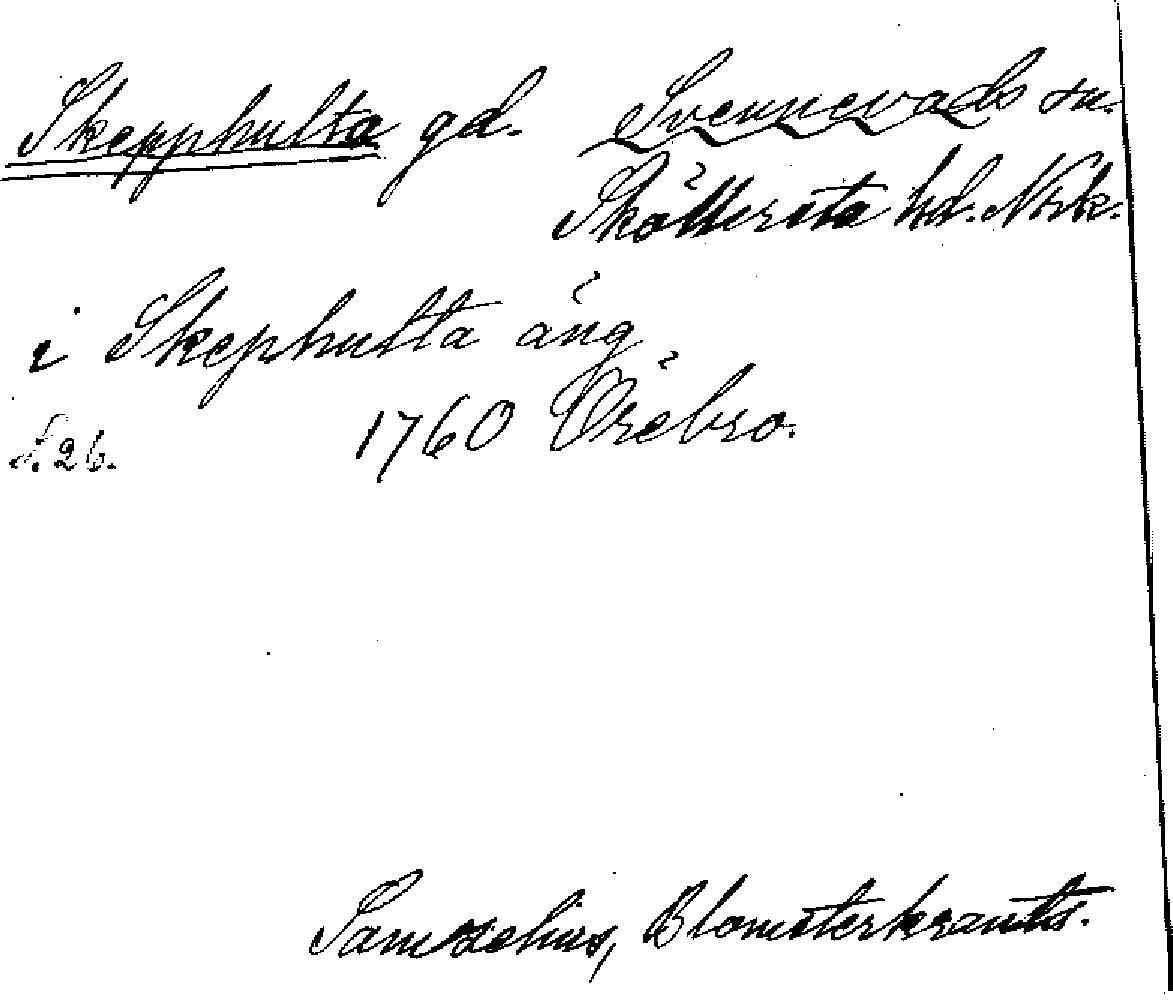 Skepphulta gd. Svennevads sn.
Sköllersta hd. Nrk.
i Skephulta äng
S. 26. 1760 Örebro.
Samzelius, Blomsterkrants.